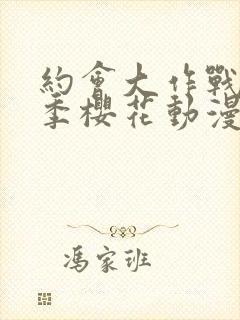 約會大作戰
季櫻花動漫
馮家班